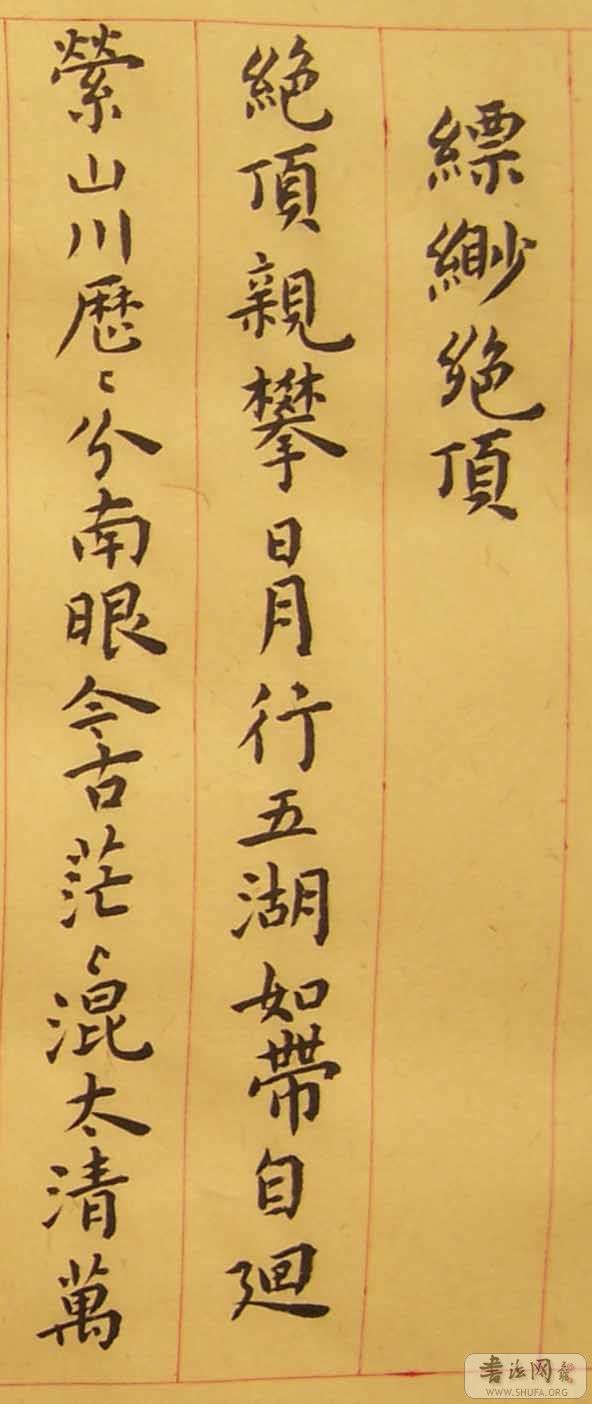 縹緲絕頂
絕頂親攀日月行五湖如帶自廻
縈山川歷〻分南眼今古茫〻混太清萬
書法网
WWW.SHUFA.ORG